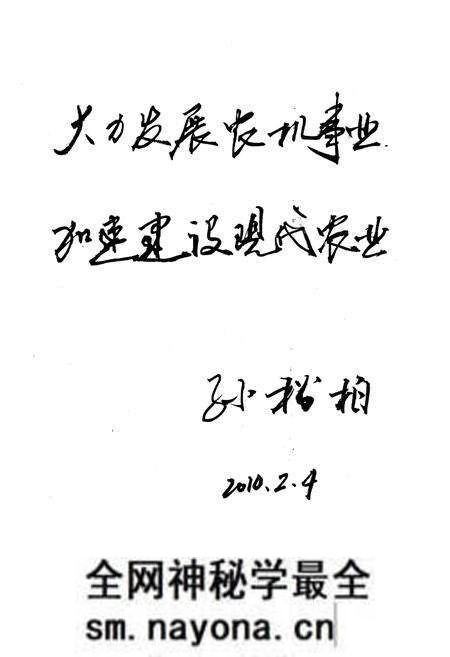 大力发展农机事业
加速建设现代农业
孙松柏
2010.2.4
全网神秘学最全
sm.nayona.cn